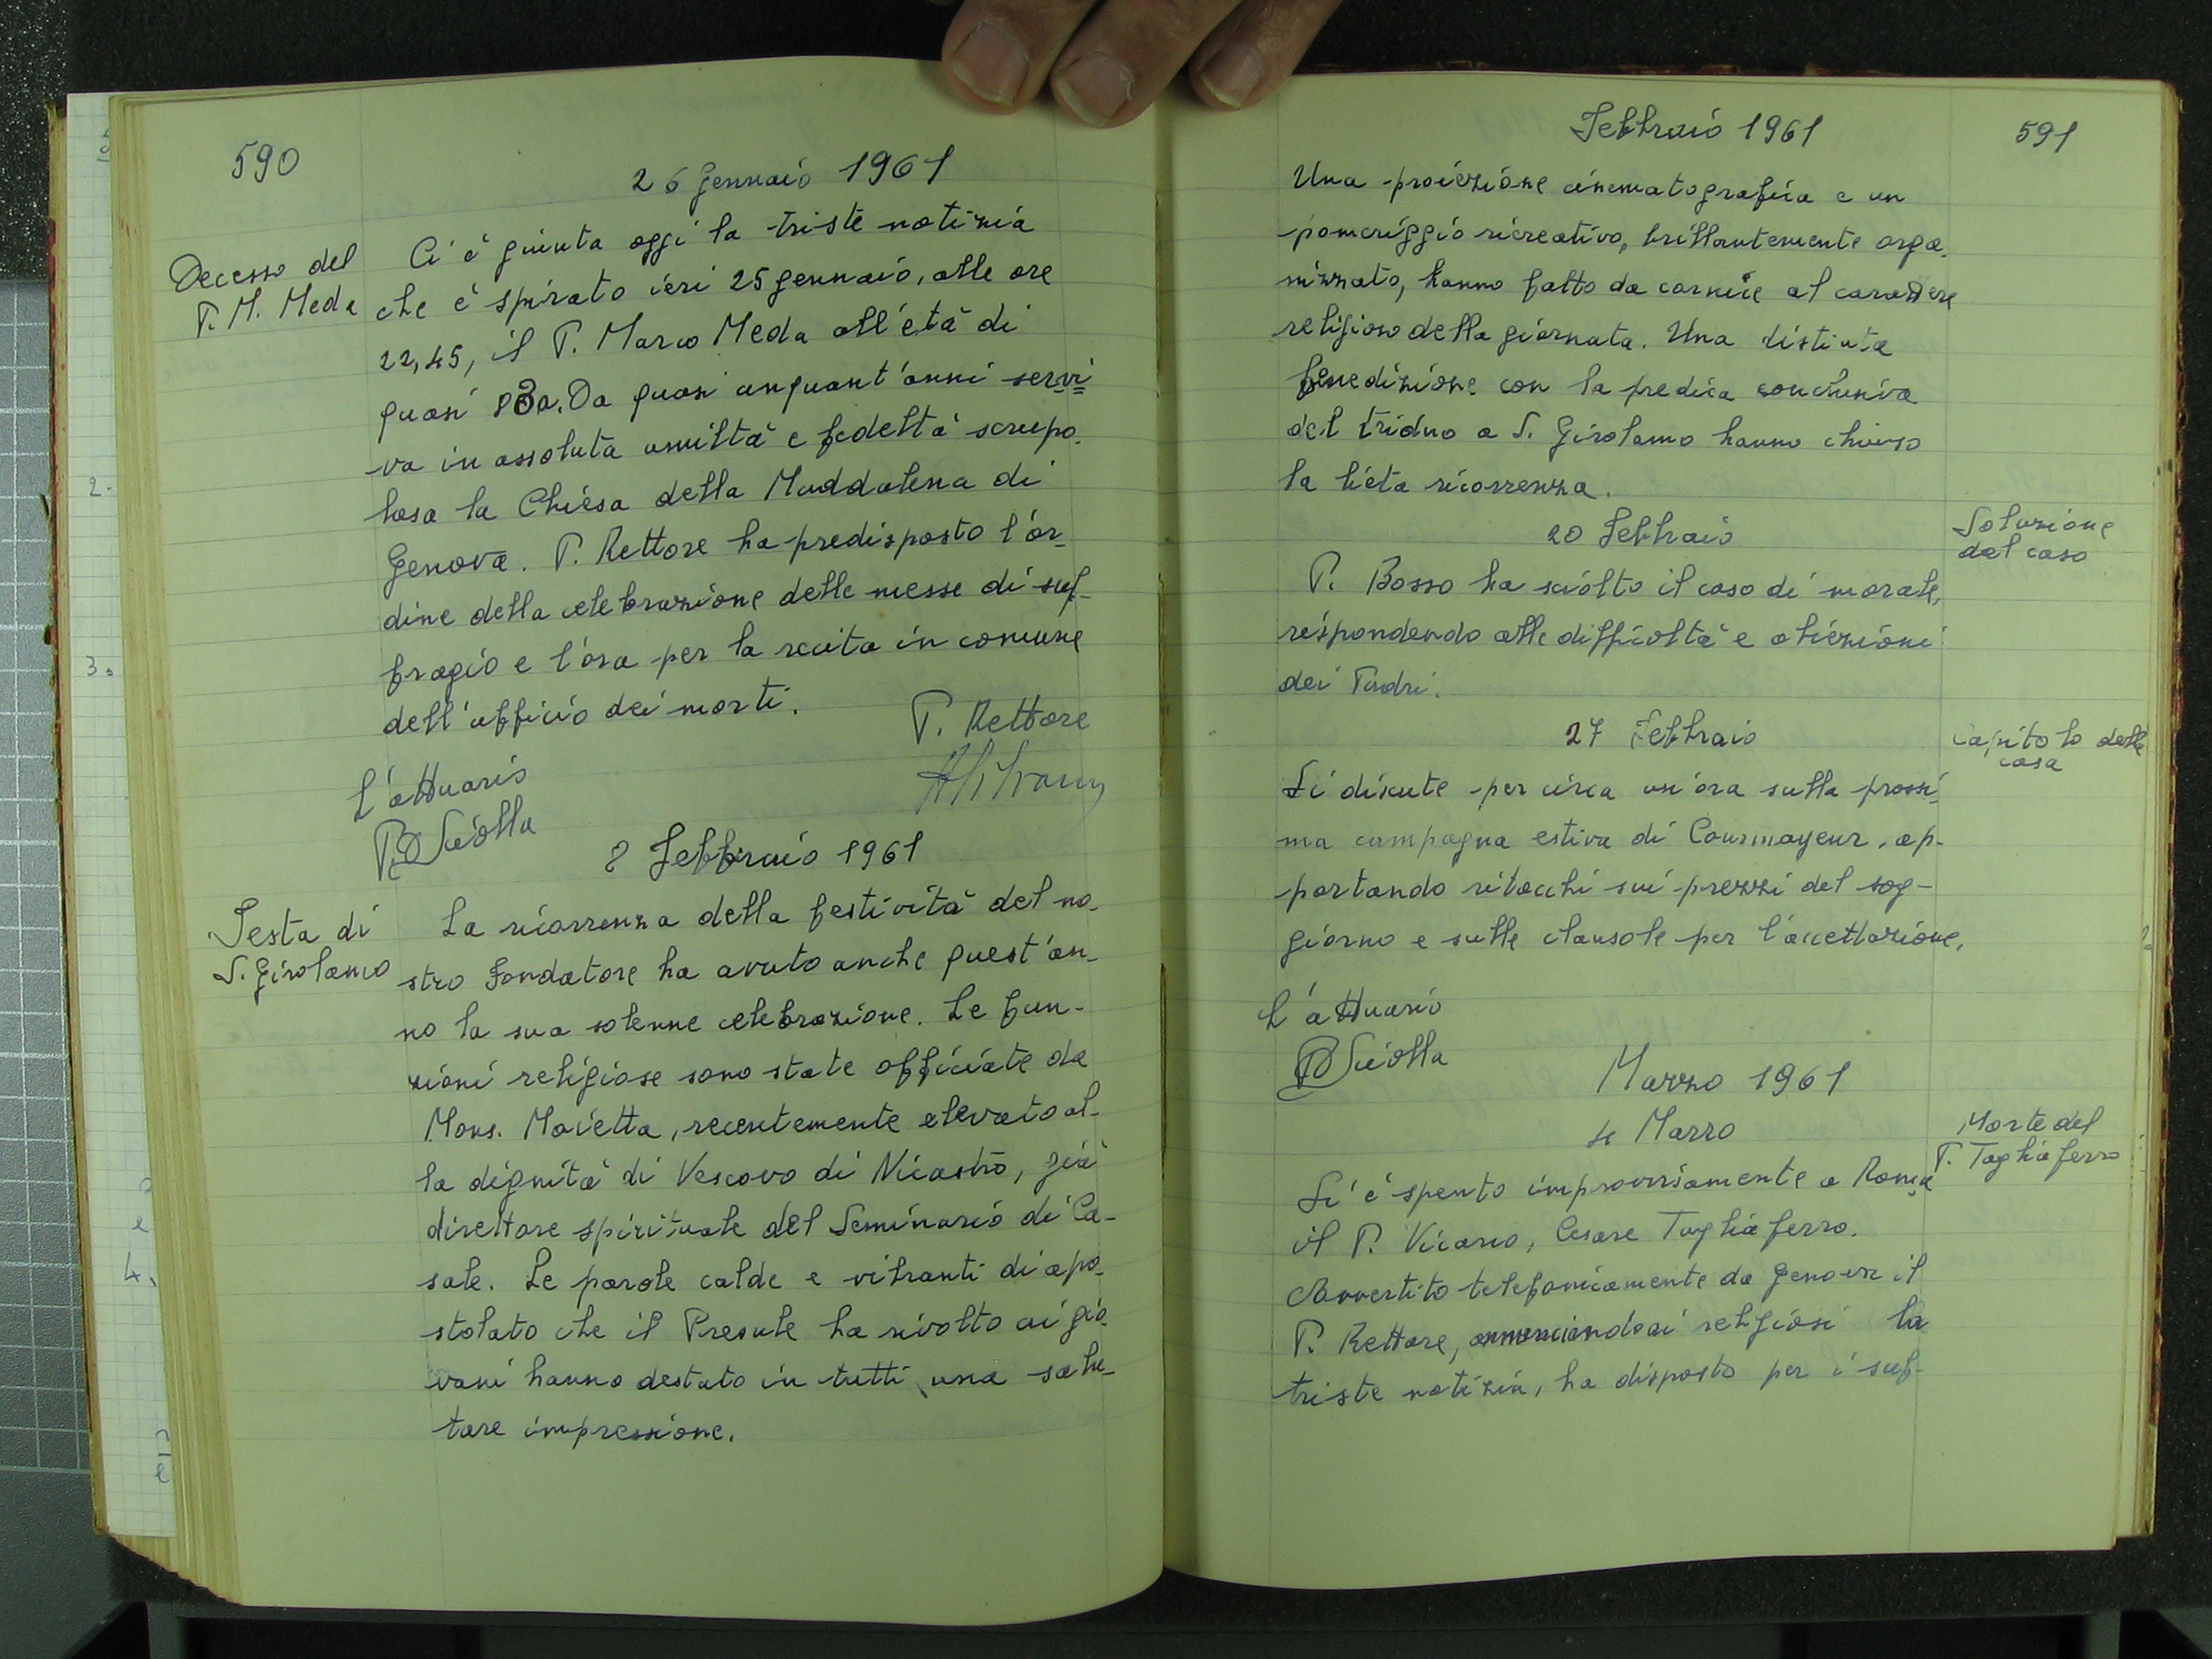 590
26 Gennaio 1961
Decesso del
P. M. Meda
Ci è giunta oggi la triste notizia
che è spirato ieri 25 gennaio, alle ore
22,45, il P. Marco Meda all'età di
quasi 83a. Da quasi cinquant'anni servi
va in assoluta umiltà e fedeltà scrupo-
losa la Chiesa della Maddalena di
Genova. P. Rettore ha predisposto l'or-
dine della celebrazione delle messe di suf-
fragio e l'ora per la recita in comune
dell'officio dei morti.
P. Rettore
L'attuario
P. Sciolla
8 Febbraio 1961
Festa di
S. Girolamo
La ricorrenza della festività del no-
stro Fondatore ha avuto anche quest'an-
no la sua solenne celebrazione. Le fun-
zioni religiose sono state officiate da
Mons. Moietta, recentemente elevato al-
la dignità di Vescovo di Nicastro, già
direttore spirituale del Seminario di Ca-
sale. Le parole calde e vibranti di apo-
stolato che il Presule ha rivolto ai gio-
vani hanno destato in tutti una salu-
tare impressione.
Febbraio 1961
591
Una proiezione cinematografica e un
pomeriggio ricreativo, brillantemente orga-
nizzato, hanno fatto da cornice al carattere
religioso della giornata. Una distinta
benedizione con la predica conclusiva
del triduo a S. Girolamo hanno chiuso
la lieta ricorrenza.
20 Febbraio
Soluzione
del caso
P. Bosso ha sciolto il caso di morale,
rispondendo alle difficoltà e obiezioni
dei Padri.
27 Febbraio
Capitolo della
casa
Si discute per circa un'ora sulla prossi-
ma campagna estiva di Courmayeur, ap-
portando ritocchi sui prezzi del sog-
giorno e sulle clausole per l'accettazione.
L'attuario
P. Sciolla
Marzo 1961
4 Marzo
Morte del
P. Tagliaferro
Si è spento improvvisamente a Roma
il P. Vicario, Cesare Tagliaferro.
Avvertito telefonicamente da Genova il
P. Rettore, annunciando ai religiosi la
triste notizia, ha disposto per i suf-
2-
3.
4.